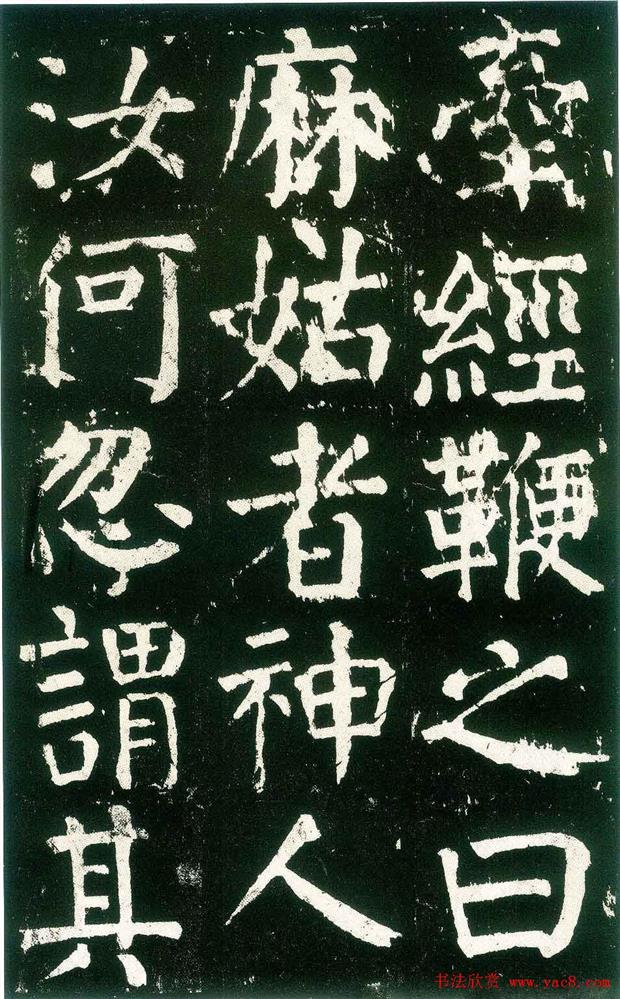 牽經鞭之曰
麻姑者神人
汝何忽謂其
书法欣赏 www.yac8.com